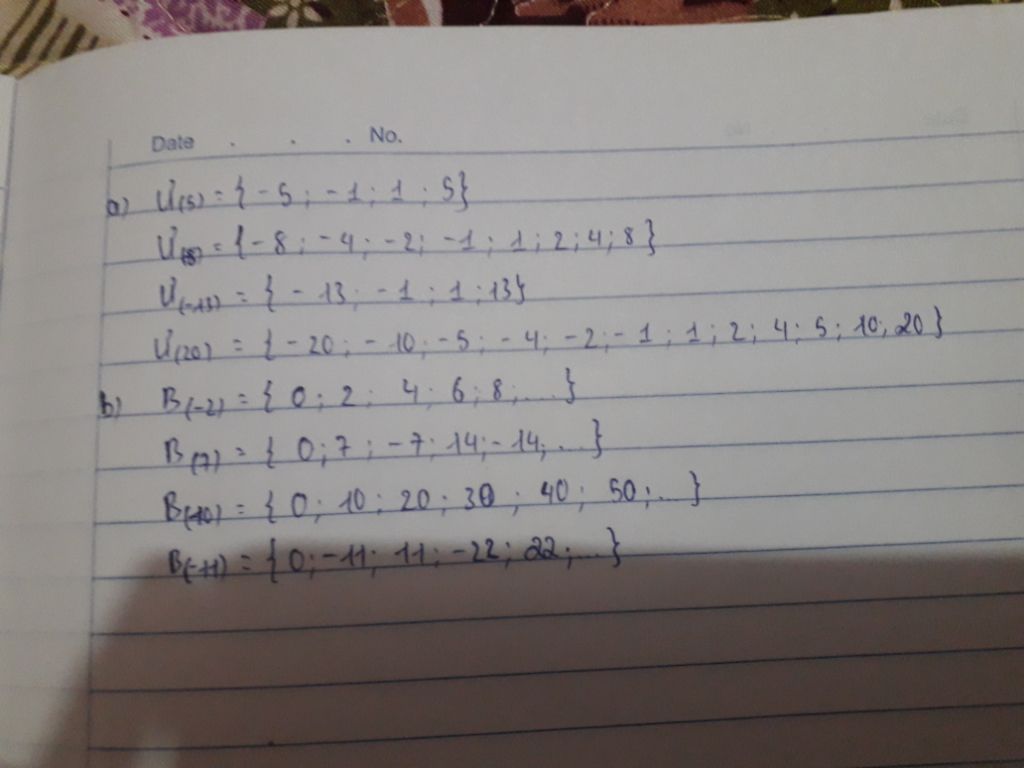 Date . . . No.
a) Ư(5) = { -5 ; -1 ; 1 ; 5}
Ư(8) = {-8 ; -4 ; -2; -1 ; 1 ; 2; 4; 8 }
Ư(-13) = { -13; -1 ; 1 ; 13}
Ư(20) = { -20; -10; -5; -4; -2; -1 ; 1 ; 2; 4; 5; 10; 20 }
b) B(-2) = { 0 ; 2 ; 4 ; 6 ; 8 ; ... }
B(7) = { 0; 7 ; -7; 14; -14; ... }
B(10) = { 0; 10; 20; 30 ; 40; 50; ... }
B(-11) = { 0; -11; 11; -22; 22; ... }